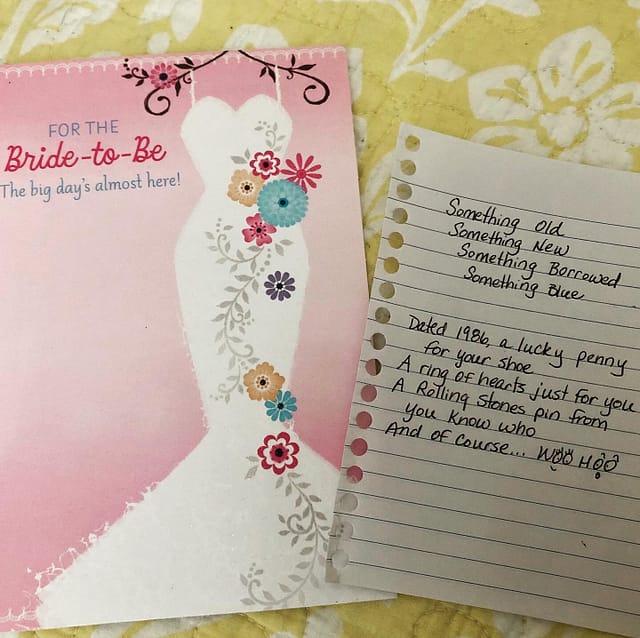 FOR THE
Bride-to-Be
The big day's almost here!
Something Old
Something New
Something Borrowed
Something Blue
Dated 1986, a lucky penny
for your shoe
A ring of hearts just for you
A Rolling Stones pin from
you know who
And of course... WÖÖ HÖÖ